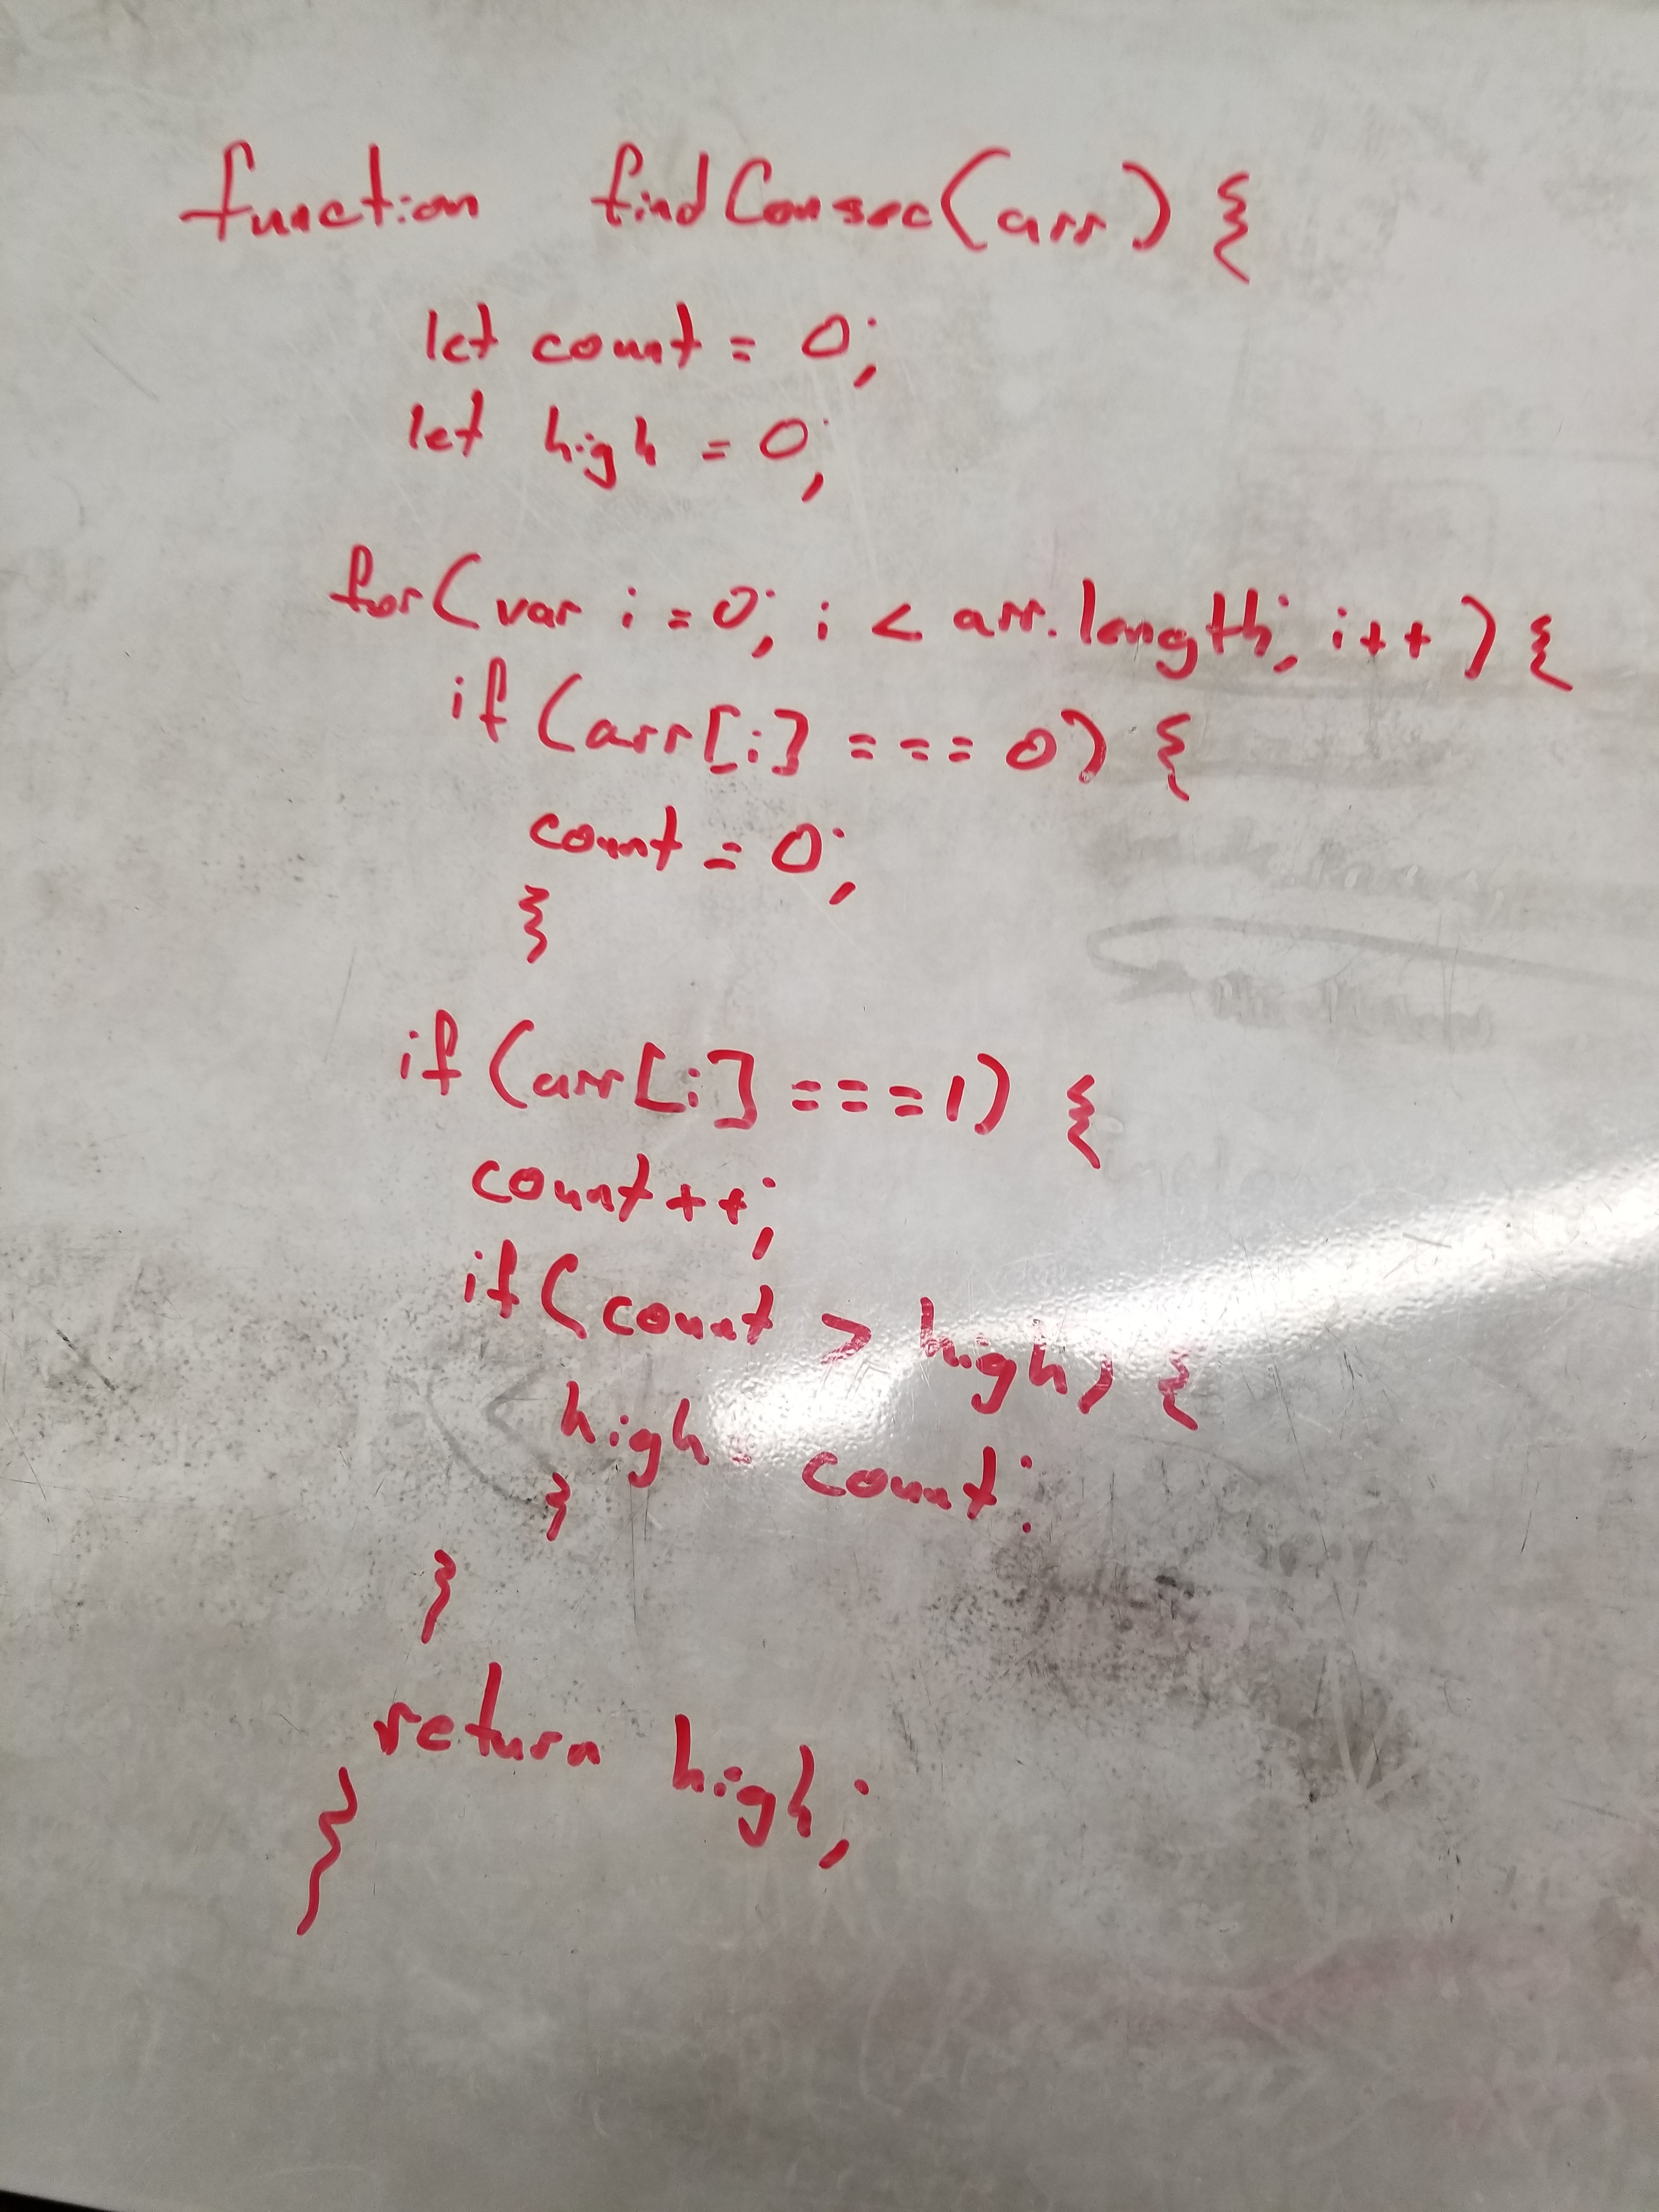 function findConsec(arr) {
let count = 0;
let high = 0;
for(var i = 0; i < arr.length; i++) {
if (arr[i] === 0) {
count = 0;
}
if (arr[i] === 1) {
count++;
if (count > high) {
high = count;
}
}
return high;
}